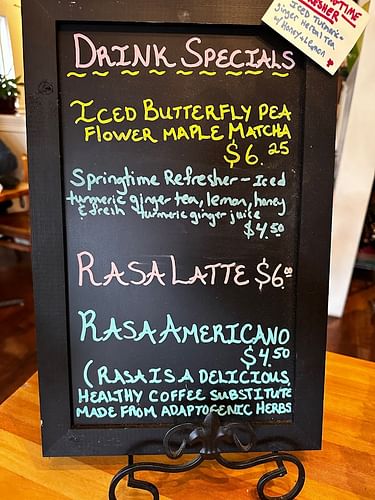 SPRINGTIME
REFRESHER
ICED TURMERIC-
ginger Herbal TEA
w/ Honey + Lemon
DRINK SPECIALS
ICED BUTTERFLY PEA
FLOWER MAPLE MATCHA
$6.25
Springtime Refresher - Iced
turmeric ginger tea, lemon, honey
& fresh turmeric ginger juice
$4.50
RASA LATTE $6.00
RASA AMERICANO
$4.50
(RASA IS A DELICIOUS,
HEALTHY COFFEE SUBSTITUTE
MADE FROM ADAPTOGENIC HERBS